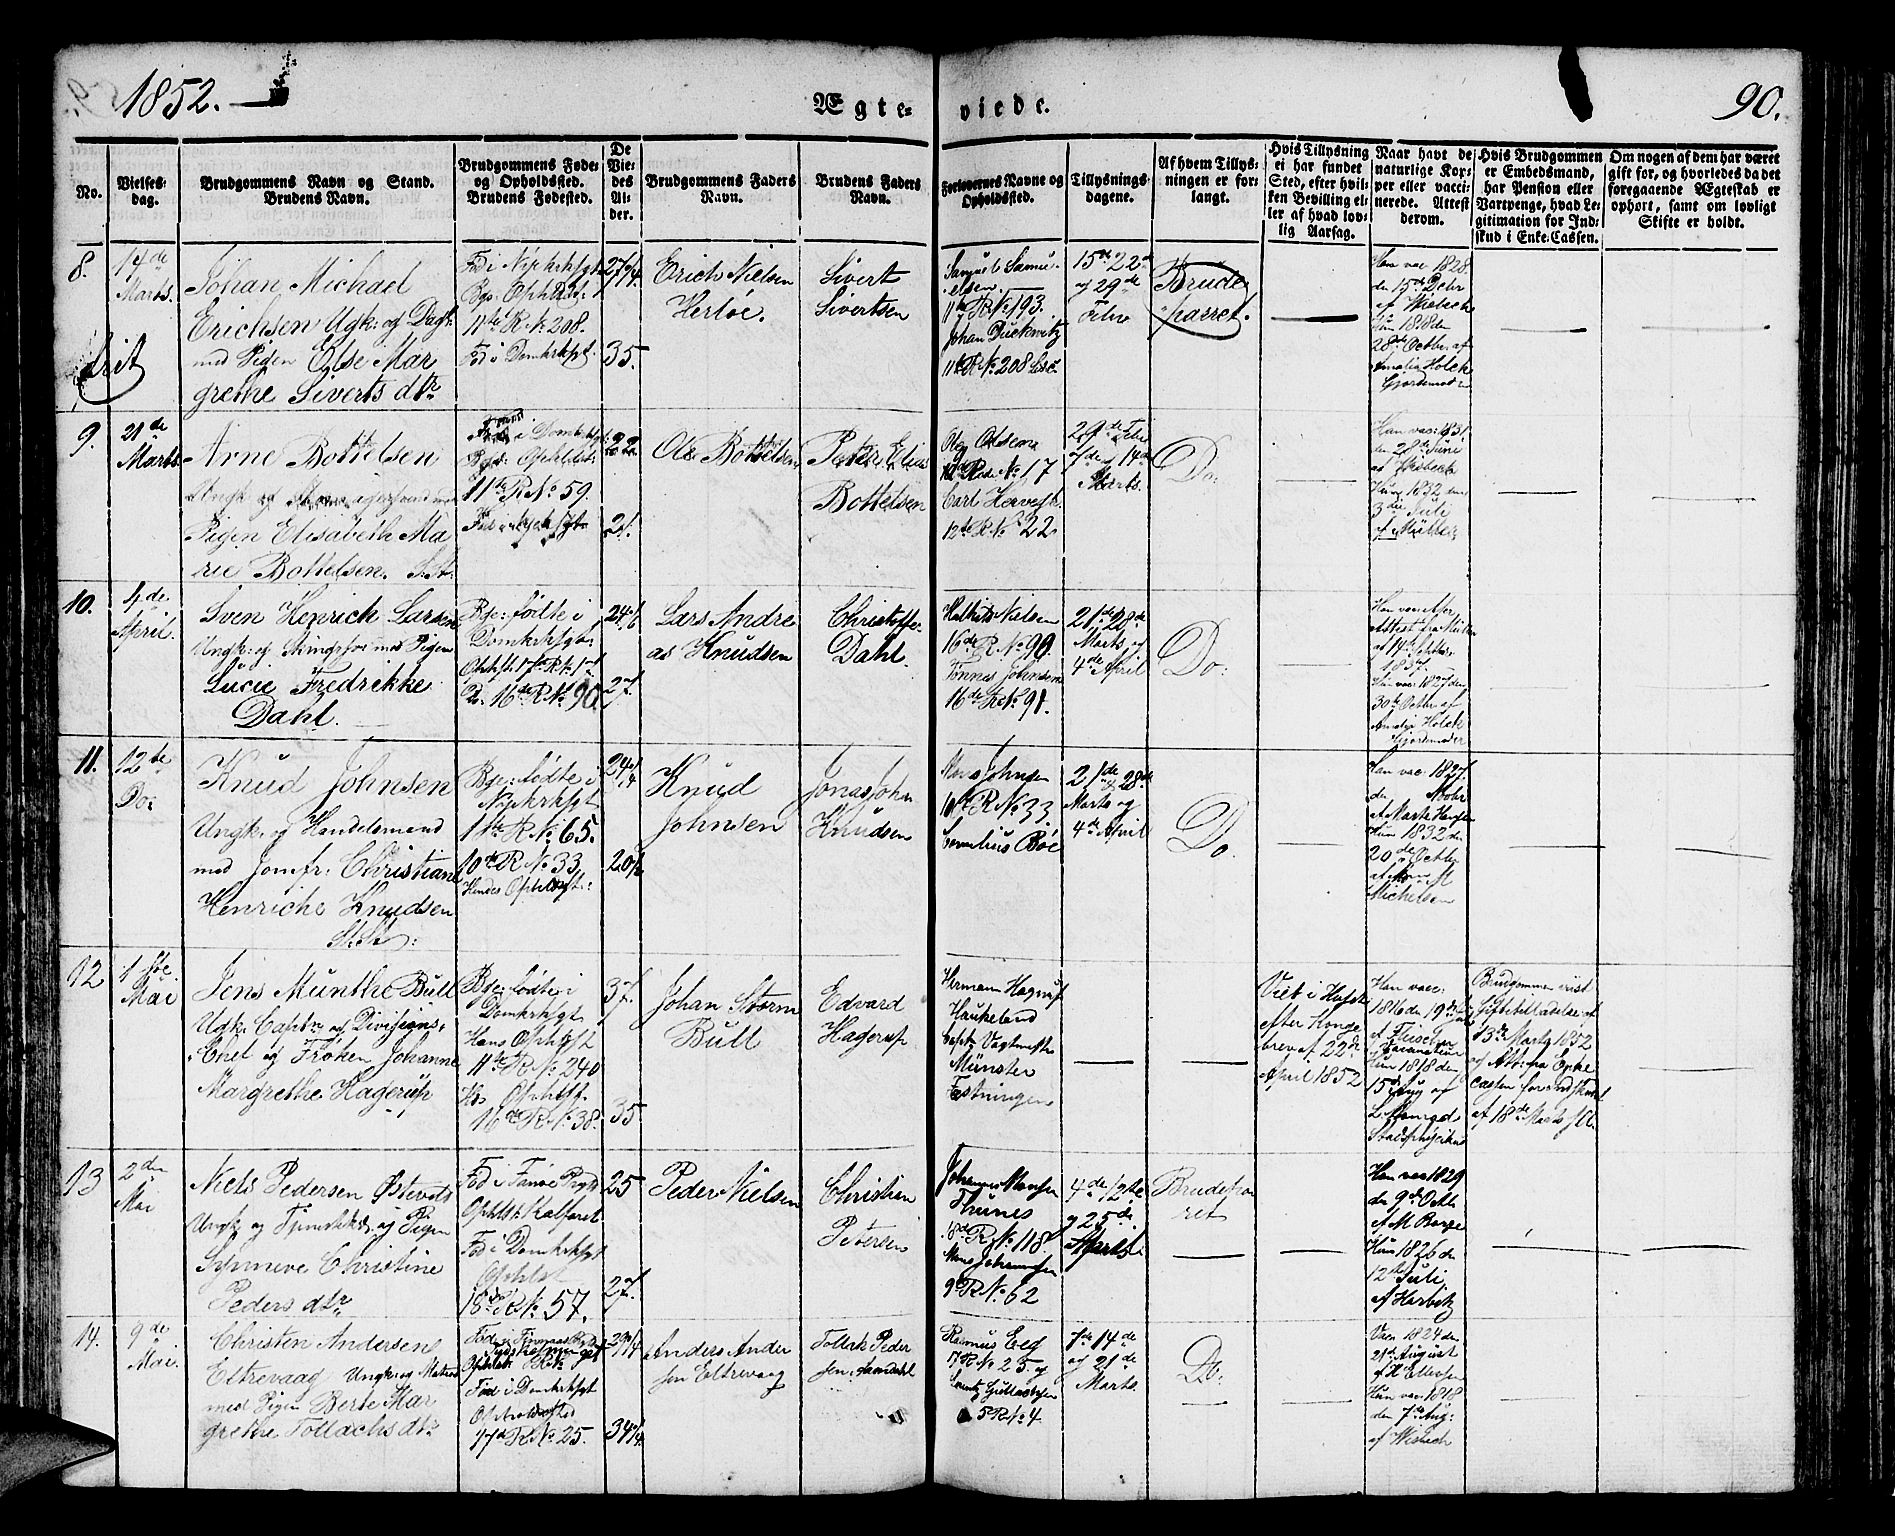 1852.
Ægte-
viede.
90.
No.
Vielses-
dag.
Brudgommens Navn og Stand.
Brudens Navn.
Brudgommens Føde-
og Opholdssted.
Brudens Fødested.
De
Vie-
des
Al-
der.
Brudgommens Faders
Navn.
Brudens Faders
Navn.
Forlovernes Navne og
Opholdssted.
Tillysnings-
dagene.
Af hvem Tillys-
ningen er for-
langt.
Hvis Tillysning
ei har fundet
Sted, efter hvil-
ken Bevilling el-
ler af hvad lov-
lig Aarsag.
Naar havt de
naturlige Kop-
per eller vacci-
nerede. Attest
derom.
Hvis Brudgommen
er Embedsmand,
har Pension eller
Vartpenge, hvad Le-
gitimation for Ind-
skud i Enke-Cassen.
Om nogen af dem har været
gift før, og hvorledes da det
foregaaende Ægteskab er
ophørt, samt om lovligt
Skifte er holdt.
8.
14de
Marts.
frit
Johan Michael
Erichsen Ungk: og Dagk:
med Pigen Else Mar
grethe Siverts dtr
Fød i Nykrksgt
Bges Ophldst:
11te R No 208.
Fød i Domkrksgt.
27 1/4
35.
Erich Nielsen
Herløe.
Sivert
Sivertsen
Samuel Samu-
elsen
11te R No 193.
Johan Duckwitz
11te R No 208
15de 22de
og 29de
Febr
Brude
parret.
Han vac: 1828.
den 15de Debr
af Wisbech
Hun 1818 den
28de Octbr. af
Amalia Holck
Gjordemoder
9.
21de
Marts
Arne Bottelsen
Ungk og
Pigen Elisabeth Ma
rie Bottelsen. S. St:
i Domkrksgt:
Bges Ophldst:
11te R No 59.
Fød i Nykrksgt
22
21.
Ole Bottelsen
Peter Elias
Bottelsen
Ole Olsen
R No 17
Carl Hervegh
12te R No 22
29de Febr
7de og 14de
Marts.
Do:
Han vac: 1831
den 28de Juni
af Wisbech
Hun 1832 den
3die Juli
af Müller
10.
4de
April.
Sven Henrich Larsen
Ungk: og med Pigen
Lucie Fredrikke
Dahl.
Bge: fødte i
Domkrksgt:
Ophst: 17de R No 1
Do. 16de R No 90.
24 1/2
27.
Lars Andre
as Knudsen
Christoffer
Dahl.
Mathias Nielsen
16de R No 90
Tønnes Johnsen
16de R No 91.
21de 28de
Marts og
4de April
Do:
Han vac: efter
Attest fra Müller
af 14de
1837.
Hun vac: 1827 den
30te Octbr af
Amalia Holck
Gjordemoder
11.
12te
Do:
Knud Johnsen
Ungk: og Handelsmand
med Jomfr: Christiane
Henriche Knudsen
St. St:
Bge: fødte i
Nykrksgt
1ste R No 65.
10de R No 33
Hendes Ophldst:
24 1/4
20 1/2
Knud
Johnsen
Jonas John
Knudsen
Mons Johnsen
10de R No 33.
Cornelius Böe
21de og 28de
Marts og
4de April
Do.
Han vac: 1827.
den Novbr
af Marte Hansen
Hun 1832 den
20de Octbr
af
Michelsen
12
1ste
Mai
Jens Munthe Bull
Ungk: Captn og Divisions-
Chef og Frøken Johanne
Margrethe Hagerup
Bge: fødte i
Domkrksgt.
Hans Ophldst
11te R No 240
Hds Ophldst.
16de R No 38.
37.
35.
Johan Storm
Bull
Edvard
Hagerup
Hermann Hagerup
Haukeland
Capt: Vagtmester
Münster
Festningen
Viet i Huset
efter Konge
brev af 22de
April 1852
Han vac:
1816 den 19de
af Fleischer
Hun 1818 den
15de Aug af
Stadsphysikus
Brudgommen vist
Giftetilladelse af
13de Marts 1852
og Att: fra Enke
Cassen for Indskud
af 18de Marts
13
2den
Mai
Niels Pedersen Østevold
Ungk og og Pigen
Synneve Christine
Peders dtr.
Fød i Fanøe Prgj
Ophst: Kalfaret
Fød i Domkrksgt
Ophldst
18de R No 57.
25
27.
Peder Nielsen
Christian
Petersen
Johannes Monsen
Thunes
18de R No 118
Mons Johannesen
9de R No 62
4de 12te
og 25de
April
Brudepar
ret
Han vac 1829
den 9de Octbr
af M Berge
Hun 1826 den
12te Juli
af Harbitz
14.
9de
Mai.
Christen Andersen
Eltrevaag Ungk: og Matros
med Pigen Berte Mar
grethe Tollachs dtr
Fød i
Fød i Domkrksgt
Opholdssted
17de R No 25.
29 1/4
34 1/4
Anders Ander
sen Eltrevaag
Tollak Peder
sen Samdahl
Rasmus Eeg
17 R No 25 og
5 R No 4
7de 14de
og 21de
Marts
Do:
Vac: 1824 den
21de August
af H Ellefsen
Hun vac: 1818
den 7de Aug:
af Wisbech